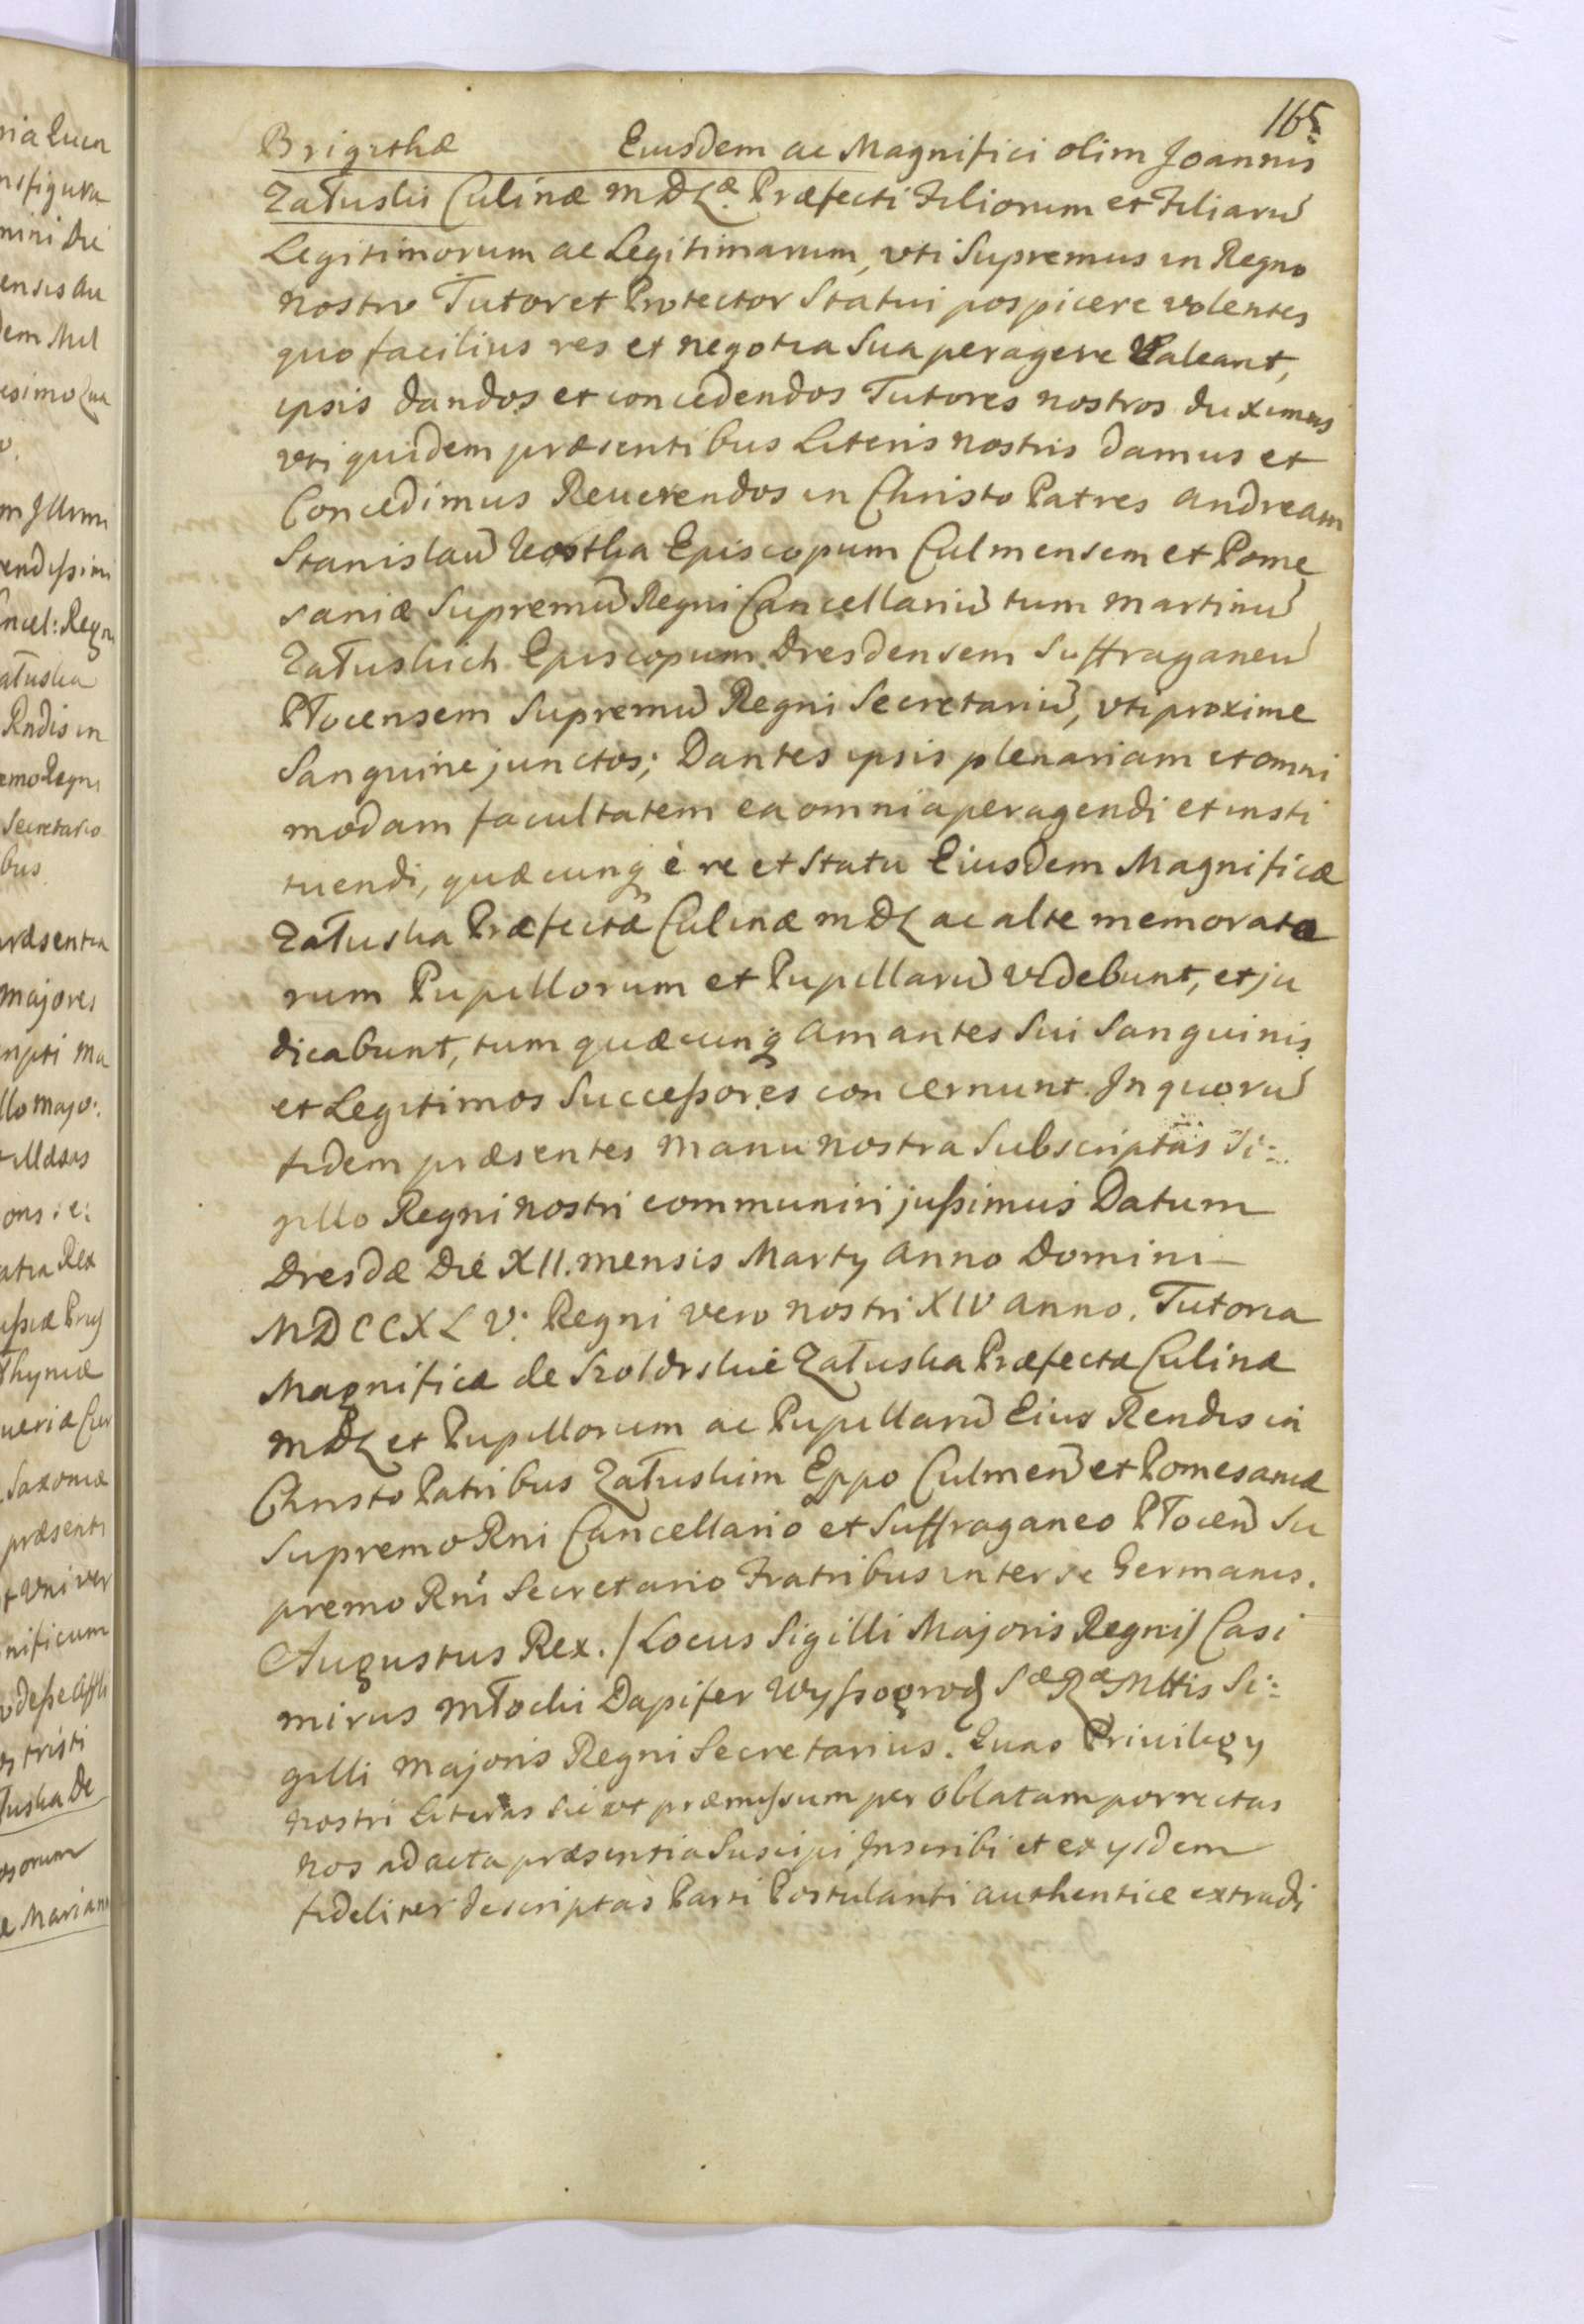 165
Brigittæ Eiusdem ac Magnifici olim Joannis
Załuski Culinæ MDLæ. Præfecti Filiorum et Filiarū
Legitimorum ac Legitimarum, vti Supremus in Regno
nostro Tutor et Protector Statui pospicere volentes
quo facilius res et negotia Sua peragere Valeant,
ipsis dandos et concedendos Tutores nostros duximus
vti quidem præsentibus Literis nostris damus et
Concedimus Reuerendos in Christo Patres Andream
Stanislaū Kostka Episcopum Culmensem et Pome
saniæ Supremū Regni Cancellariū tum Martinū
Załuskich Episcopum Dresdensem Suffraganeū
Płocensem Supremū Regni Secretariū, vti proxime
Sanguine junctos; Dantes ipsis plenariam et omni
modam facultatem ea omnia peragendi et insti
tuendi, quæcunq è re et Statu Eiusdem Magnificæ
Załuska Præfectæ Culinæ MDL ac alte memorata
rum Pupillorum et Pupillarū videbunt, et ju
dicabunt, tum quæcunq amantes Sui Sanguinis
et Legitimos Successores concernunt. In quorū
fidem præsentes Manu nostra Subscriptas Si:
gillo Regni nostri communiri jussimus Datum
Dresdæ Die XII. mensis Martij Anno Domini
MDCCXLV. Regni vero nostri XIV anno. Tutoria
Magnificæ de Szołdrskie Załuska Præfectæ Culinæ
MDL et Pupillorum ac Pupillarū Eius Rendis in
Christo Patribus Załuskim Eppo Culmen̄ et Pomesaniæ
Supremo Rni Cancellario et Suffraganeo Płocen̄ Su
premo Rni Secretario Fratribus inter se Germanis.
Augustus Rex. /Locus Sigilli Majoris Regni/ Casi
mirus Młocki Dapifer Wyssogrod SæRæMttis Si:
gilli Majoris Regni Secretarius. Quas Priuilegy
nostri Literas sic ut præmissum per oblatam porrectas
nos ad acta præsentia Suscipi Inscribi et ex ijsdem
fideliter descriptas Parti Postulanti authentice extradi